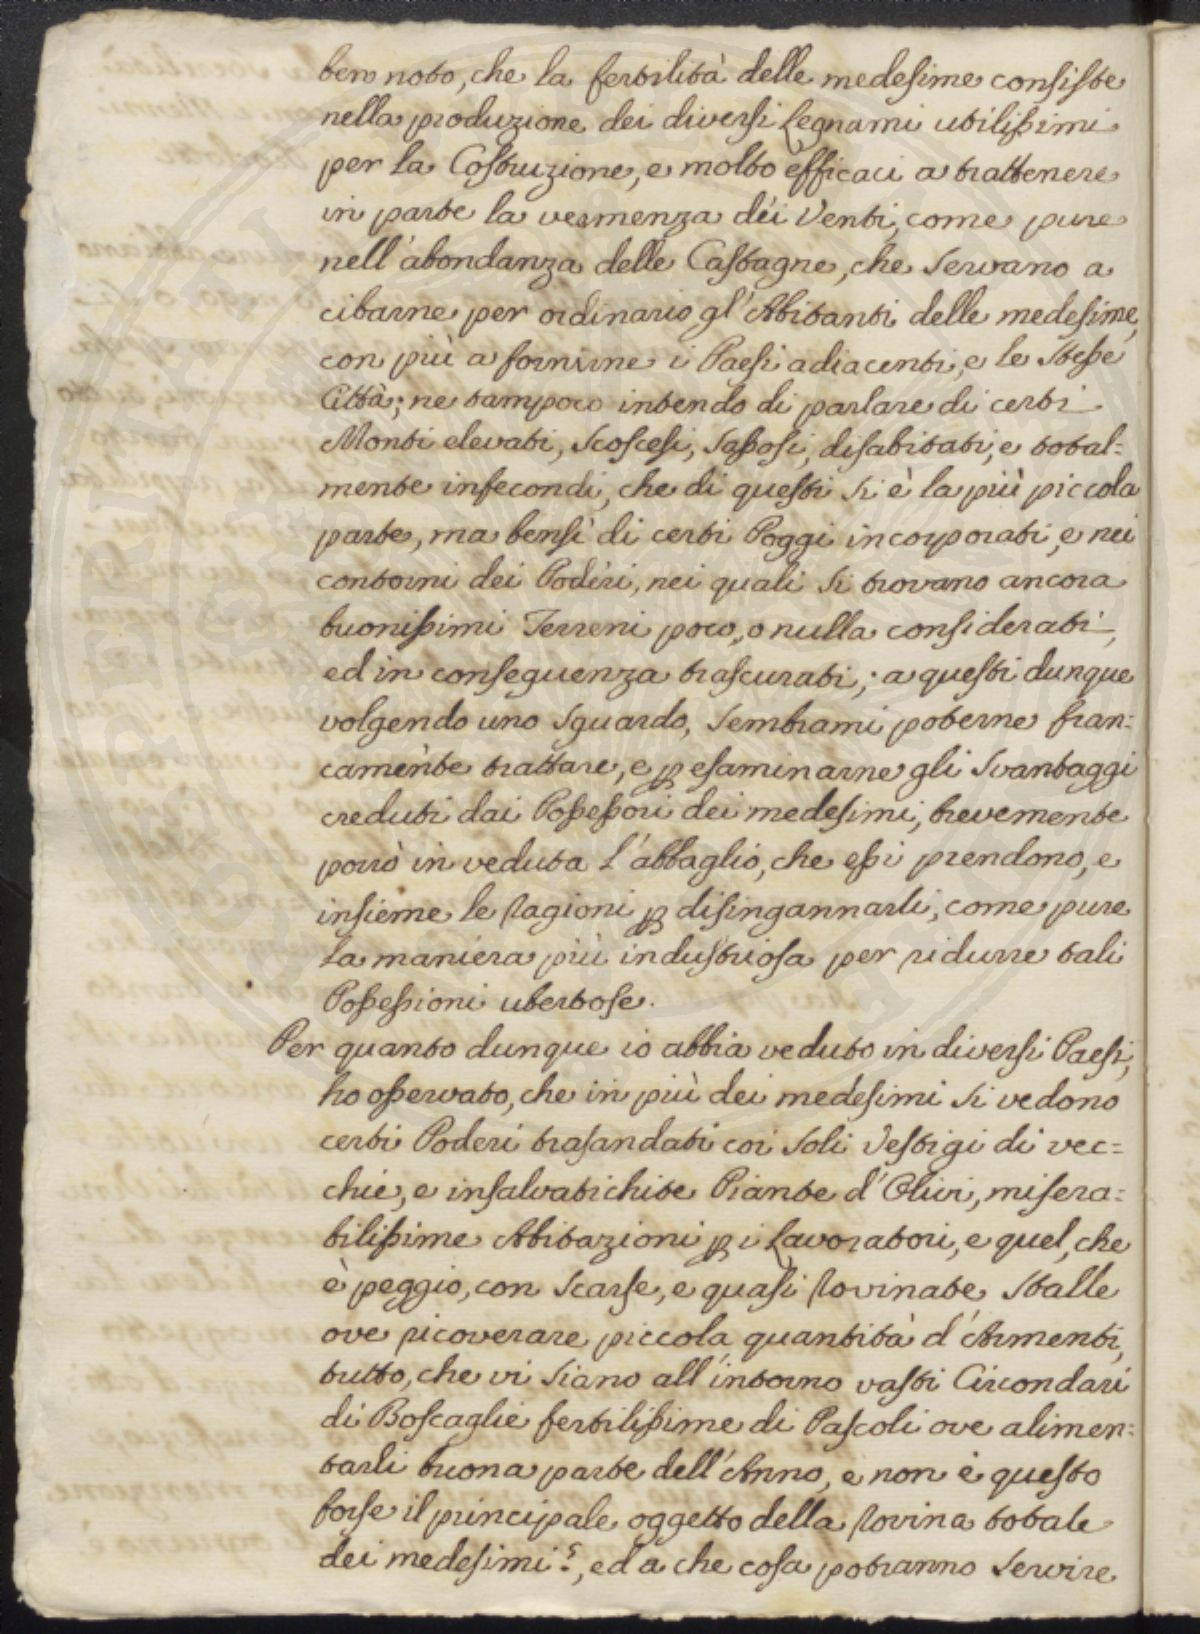 ben noto, che la fertilità delle medesime consiste
nella produzione dei diversi Legnami utilissimi
per la Costruzione, e molto efficaci a trattenere
in parte la veemenza dei Venti, come pure
nell'abondanza delle Castagne, che servano a
cibarne per ordinario gl'Abitanti delle medesime,
con più a fornirne i Paesi adiacenti, e le stesse
Città; ne tampoco intendo di parlare di certi
Monti elevati, Scoscesi, Sassosi, disabitati, e total=
mente infecondi, che di questi si è la più piccola
parte, ma bensì di certi Poggi incorporati, e nei
contorni dei Poderi, nei quali si trovano ancora
buonissimi Terreni poco, o nulla considerati,
ed in conseguenza trascurati; a questi dunque
volgendo uno sguardo, sembrami poterne fran=
camente trattare, e p esaminarne gli Svantaggi
creduti dai Possessori dei medesimi, brevemente
porrò in veduta l'abbaglio, che essi prendono, e
insieme le ragioni p disingannarli, come pure
la maniera più industriosa per ridurre tali
Possessioni ubertose.
Per quanto dunque io abbia veduto in diversi Paesi,
ho osservato, che in più dei medesimi si vedono
certi Poderi trasandati coi soli Vestigi di vec=
chie, e insalvatichite Piante d'Olivi, misera=
bilissime Abitazioni p i Lavoratori, e quel, che
è peggio, con scarse, e quasi rovinate Stalle
ove ricoverare piccola quantità d'Armenti,
tutto, che vi siano all'intorno vasti Circondari
di Boscaglie fertilissime di Pascoli ove alimen=
tarli buona parte dell'Anno, e non è questo
forse il principale oggetto della rovina totale
dei medesimi?, ed a che cosa potranno servire